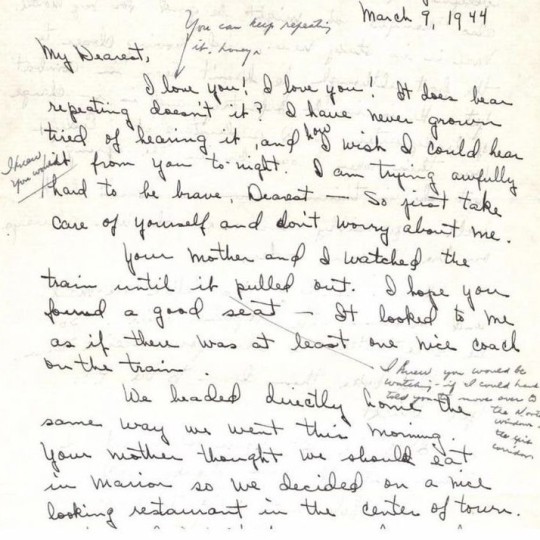 March 9, 1944
You can keep repeating
it, honey.
My Dearest,
I love you! I love you! It does bear
repeating doesn't it? I have never grown
tired of hearing it, and how I wish I could hear
it from you to-night. I am trying awfully
I knew
you would
hard to be brave, Dearest — So just take
care of yourself and don't worry about me.
Your mother and I watched the
train until it pulled out. I hope you
found a good seat — It looked to me
as if there was at least one nice coach
on the train.
I knew you would be
watching - if I could have
told you to move over to
the
window -
the
corridor
We headed directly home the
same way we went this morning.
Your mother thought we should eat
in Marion so we decided on a nice
looking restaurant in the center of town.